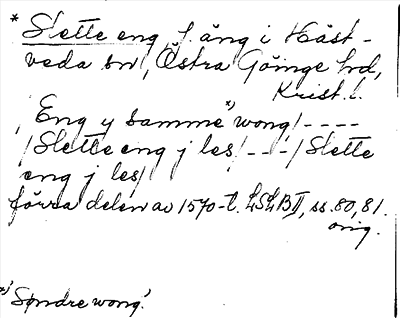 * Slette eng, f. äng i Häst-
veda sn, Östra Göinge hd,
Krist. l.
, Eng y samme *) wong/----
/Slette eng j les/---/Slette
eng j les/
förra delen av 1570-t. LSLB II, ss. 80, 81.
orig.
*) 'Søndre wong'.